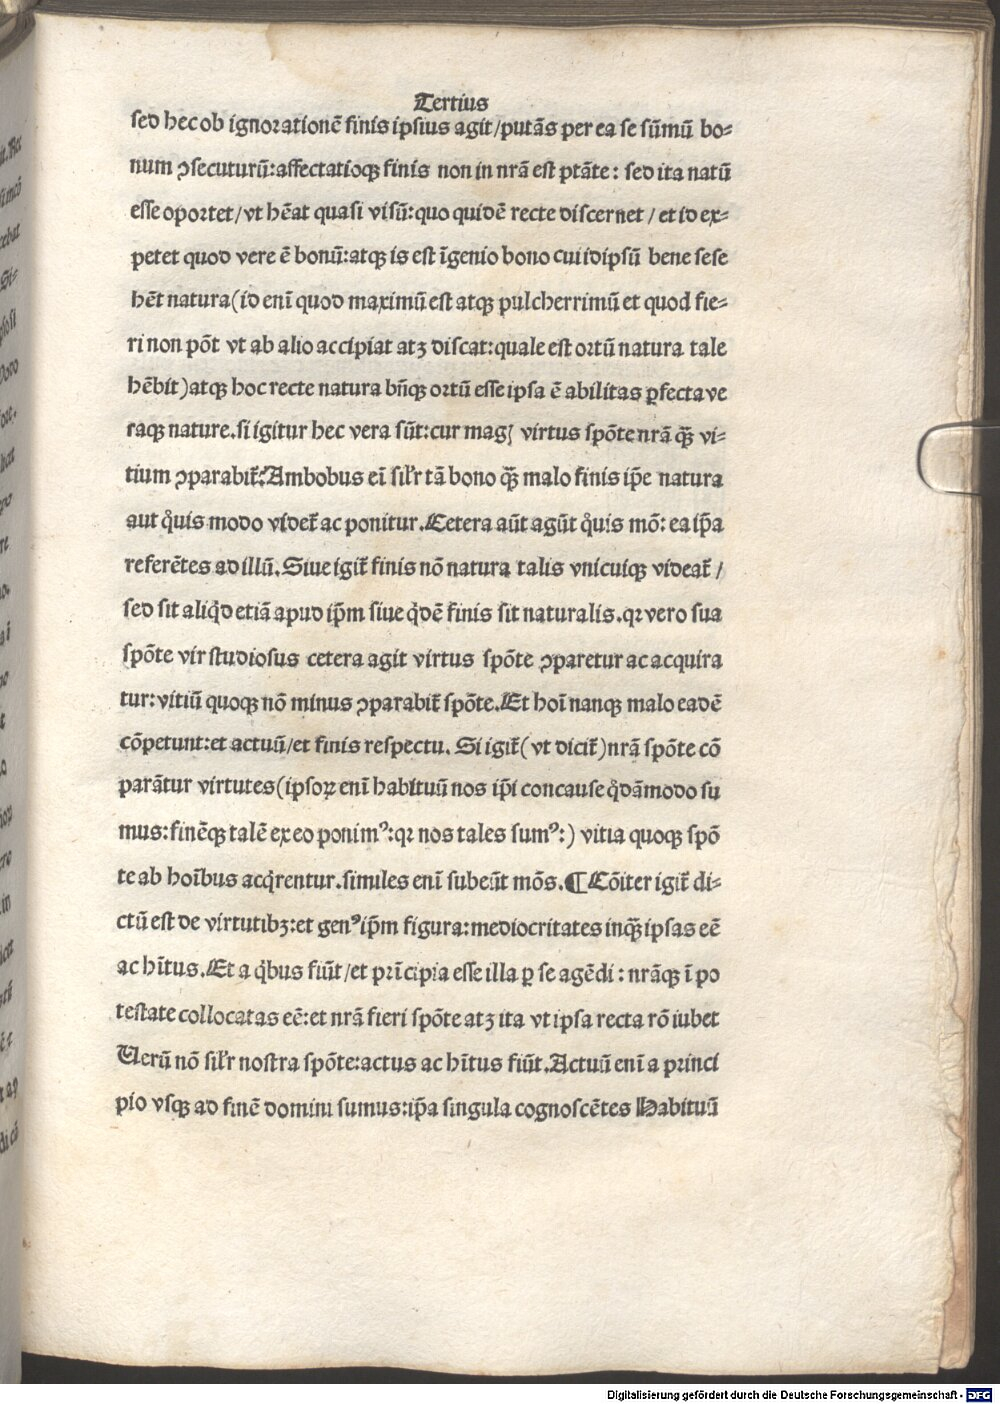 Tertius
sed hec ob ignorationē finis ipsius agit/putās per ea se sūmū bo=
num ↄsecuturū:affectatioqꝫ finis non in nrā est ptāte: sed ita natū
esse oportet/vt hēat quasi visū:quo quidē recte discernet / et id ex=
petet quod vere ē bonū:atqꝫ is est īgenio bono cui idipsū bene sese
hēt natura(id enī quod maximū est atqꝫ pulcherrimū et quod fie=
ri non pōt vt ab alio accipiat atꝫ discat:quale est ortū natura tale
hēbit)atqꝫ hoc recte natura bn̄qꝫ ortū esse ipsa ē abilitas ꝑfecta ve
raqꝫ nature.si igitur hec vera sūt:cur mag virtus spōte nrā qꝫ̄ vi=
tium ↄparabit̄:Ambobus eī sil'r tā bono qꝫ̄ malo finis ip̄e natura
aut q̊uis modo videt̄ ac ponitur.Cetera aūt agūt q̊uis mō: ea ip̄a
referētes ad illū.Siue igit̄ finis nō natura talis vnicuiqꝫ videat̄ /
sed sit aliq̊d etiā apud ip̄m siue q̊dē finis sit naturalis.qꝛ vero sua
spōte vir studiosus cetera agit virtus spōte ↄparetur ac acquira
tur:vitiū quoqꝫ nō minus ↄparabit̄ spōte.Et hoī nanqꝫ malo eadē
cōpetunt:et actuū/et finis respectu. Si igit̄(vt dicit̄)nrā spōte cō
parātur virtutes(ipsoꝝ enī habituū nos ip̄i concause q̊dāmodo su
mus:finēqꝫ talē ex eo ponimꝰ:qꝛ nos tales sumꝰ:) vitia quoqꝫ spō
te ab hoībus acq̊rentur.similes enī subeūt mōs.¶Cōiter igit̄ di=
ctū est de virtutibꝫ:et genꝰ ip̄m figura:mediocritates inqꝫ̄ ipsas eē
ac hītus.Et a q̊bus fiūt/et prīcipia esse illa ꝑ se agēdi : nrāqꝫ ī po
testate collocatas eē:et nrā fieri spōte atꝫ ita vt ipsa recta rō iubet
Verū nō sil'r nostra spōte:actus ac hītus fiūt.Actuū enī a princi
pio vsqꝫ ad finē domini sumus:ip̄a singula cognoscētes Habituū
Digitalisierung gefördert durch die Deutsche Forschungsgemeinschaft - DFG